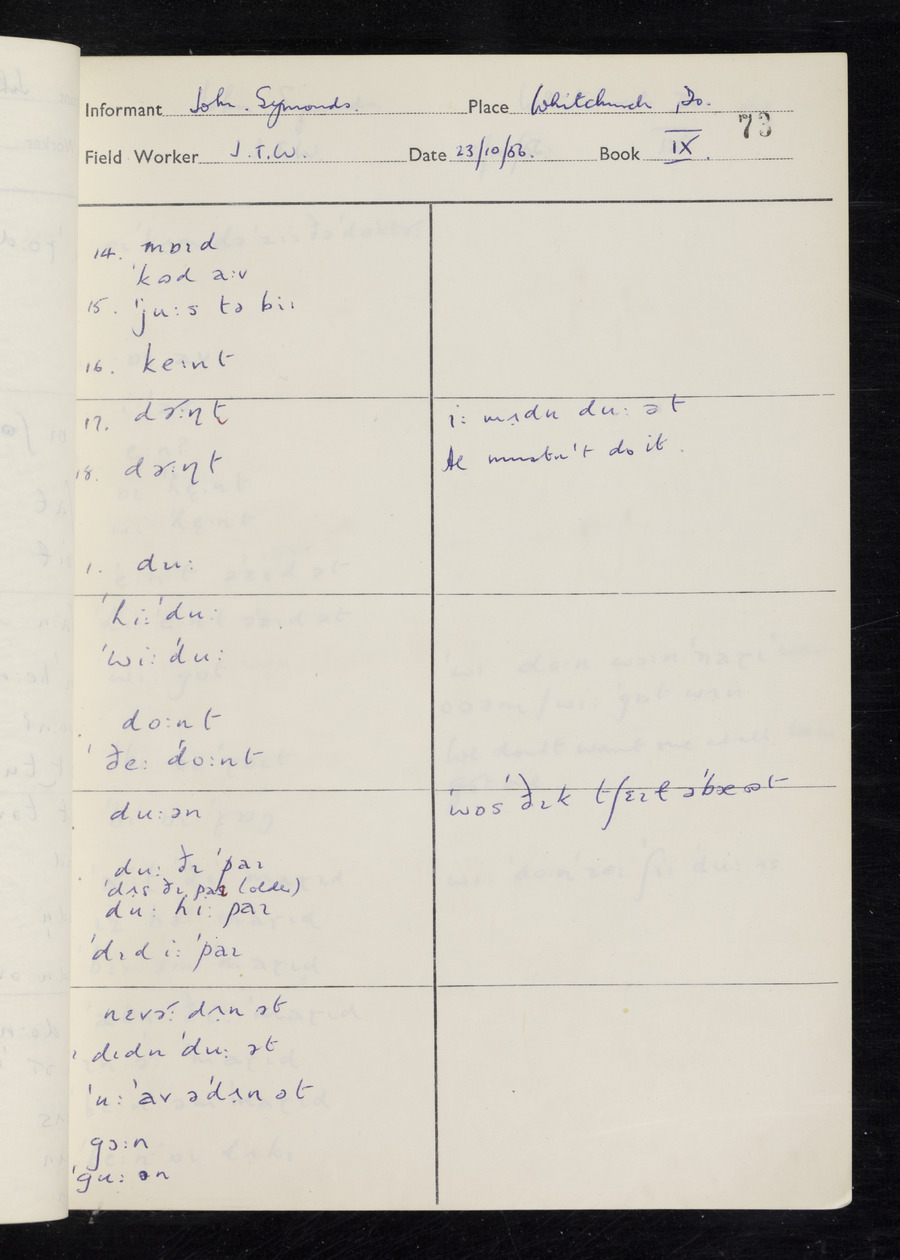 Informant John. Symonds. Place Whitchurch, Do.
73
Field Worker J.T.W. Date 23/10/56. Book IX.
14. mɒɪd
'kəd a:v
15. 'ju:s tə bi:
16. ke:nt
17. də:ɳt
i: mʌdn du: ət
He mustn't do it.
18. də:ɳt
1. du:
'hi: 'du:
'wi: 'du:
do:nt
'ðe: 'do:nt
du:ən
du: ðɪ 'paɪ
'dʌs ðɪ paɪ (older)
du: hi: paɪ
'dɪd i: 'paɪ
nɛvə: dʌn ət
dɪdn 'du: ət
'u: 'av ə'dʌn ət
gɔ:n
'gu: ən